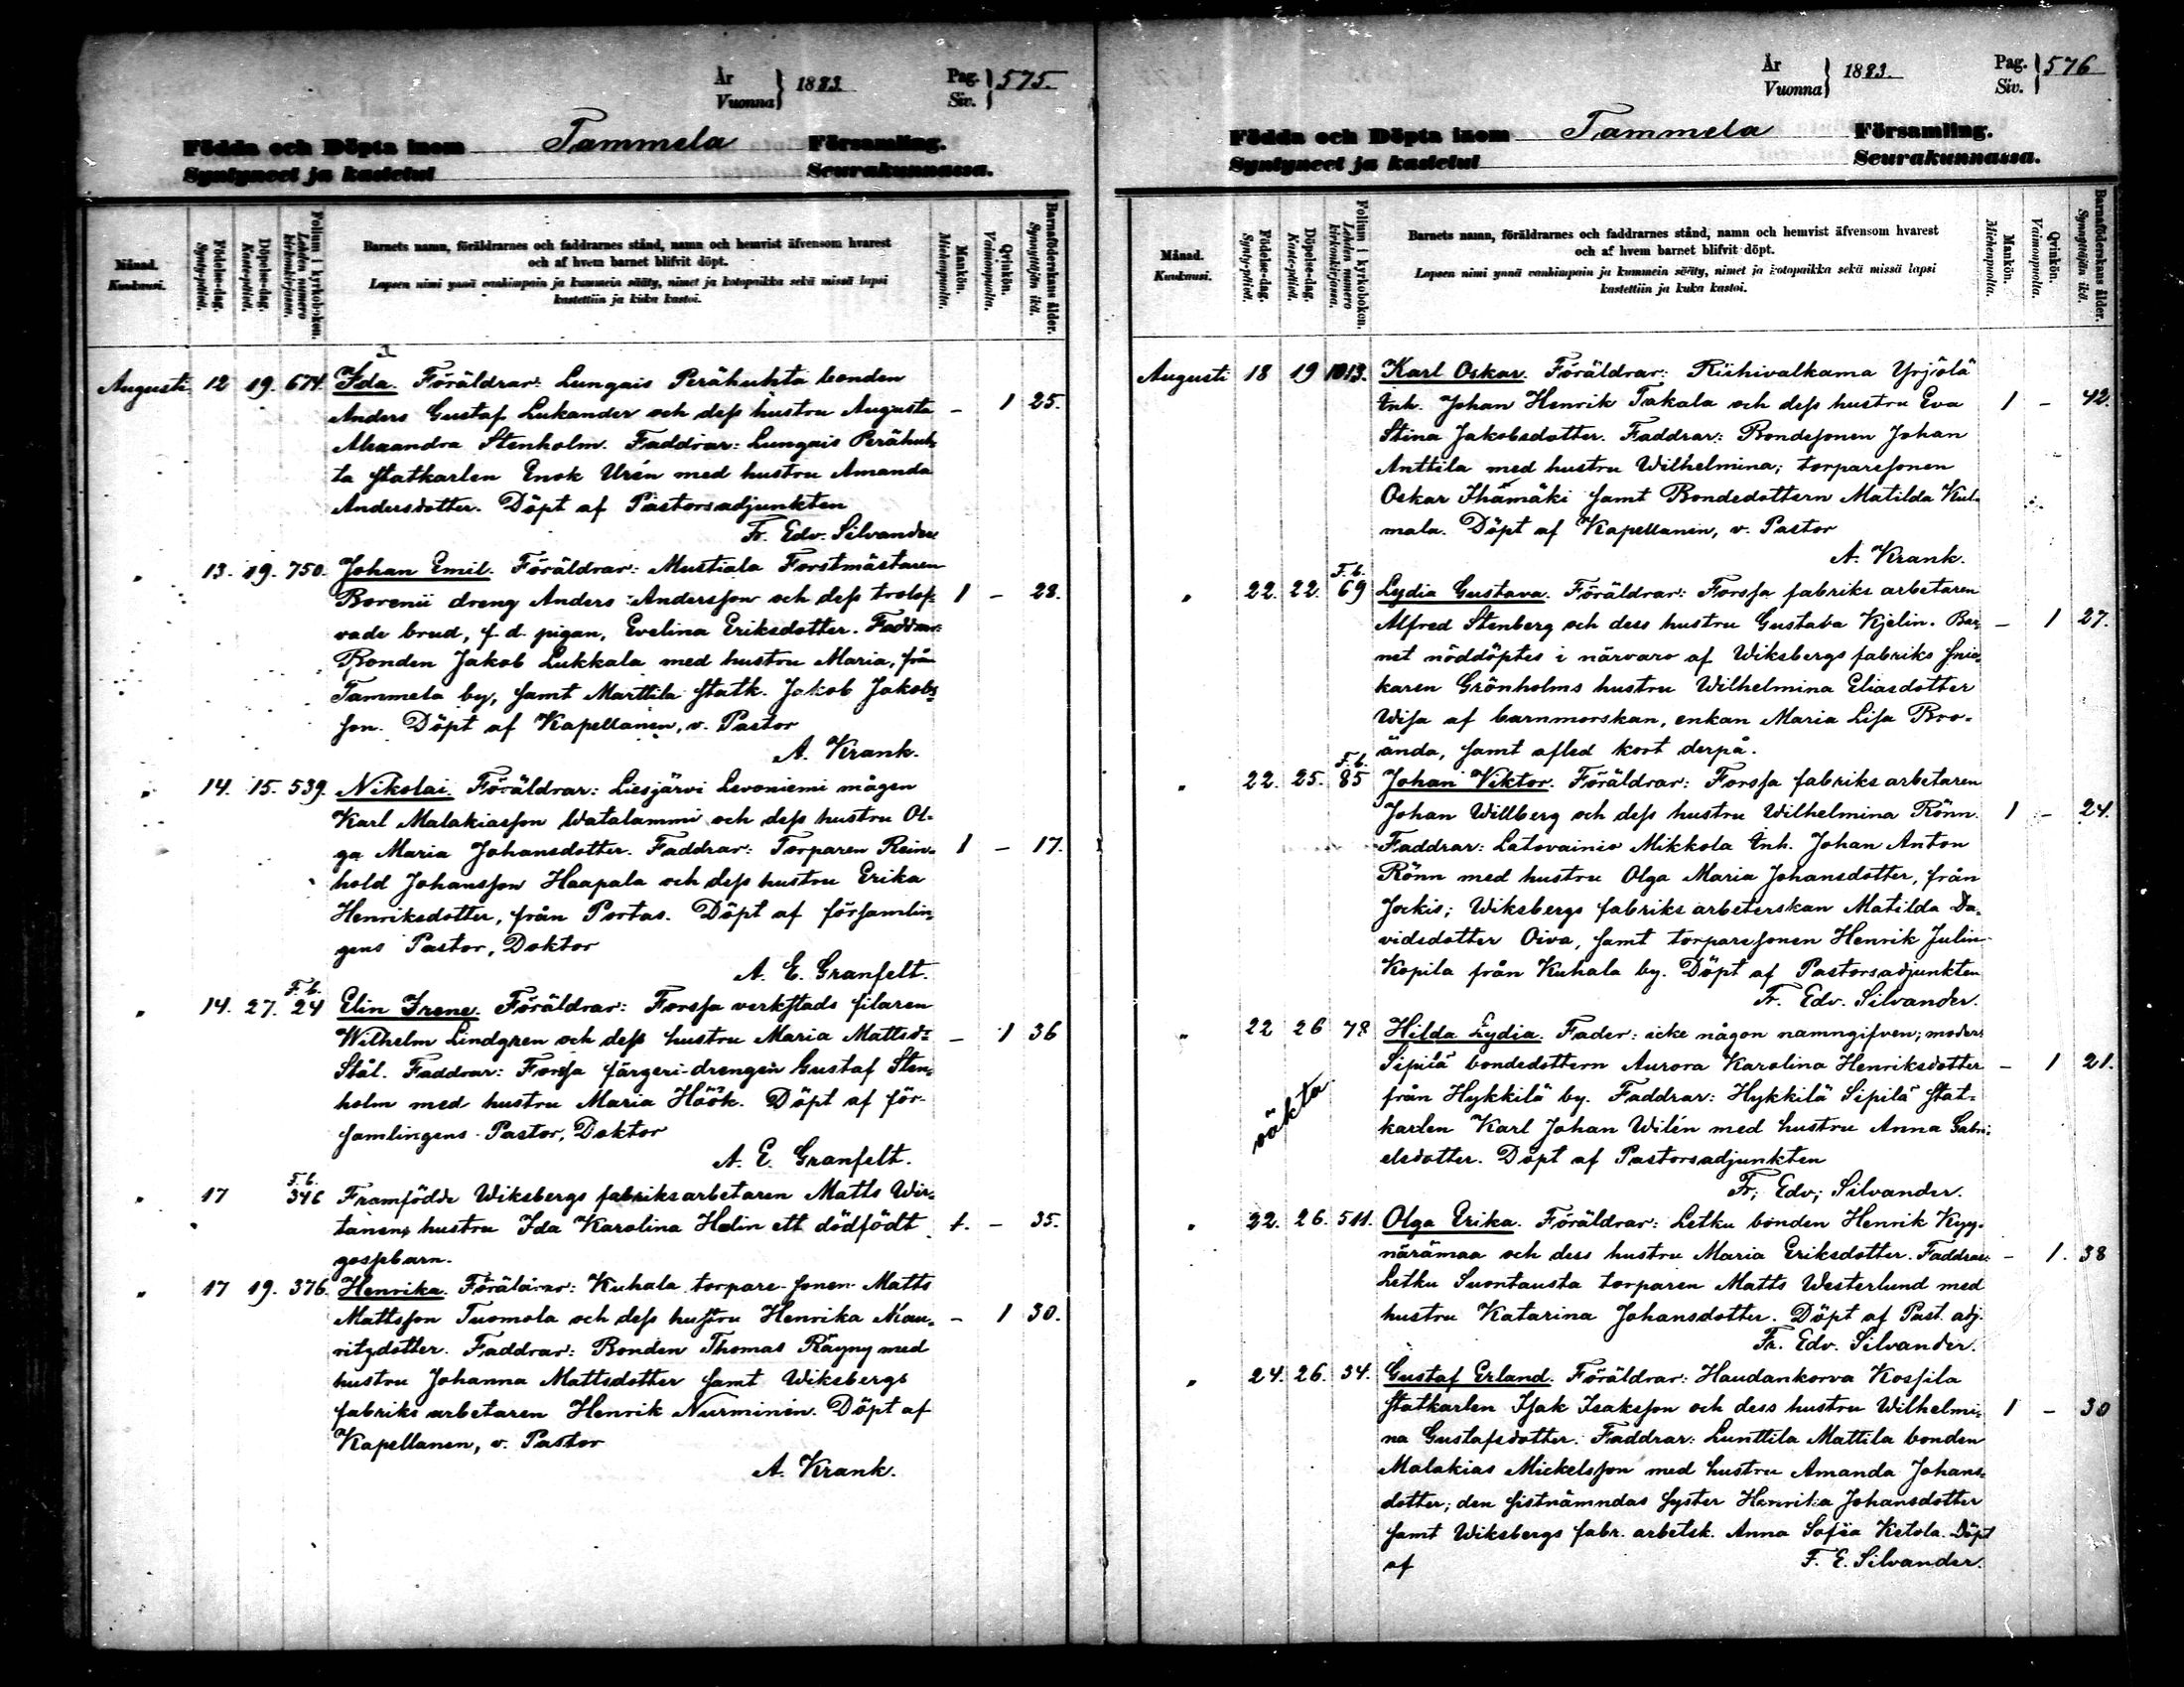 År
Vuonna } 1883. Pag.
Siv. } 575.
Födda och Döpta inom Tammela Församling.
Syntyneet ja kastetut Seurakunnassa.
Månad.
Kuukausi.
Födelse-dag.
Synty-päivä.
Döpelse-dag.
Kaste-päivä.
Folium i kyrkoboken.
Lehden numero kirkonkirjassa.
Barnets namn, föräldrarnes och faddrarnes stånd, namn och hemvist äfvensom hvarest
och af hvem barnet blifvit döpt.
Lapsen nimi ynnä vanhimpain ja kummein sääty, nimet ja kotopaikka sekä missä lapsi
kastettiin ja kuka kastoi.
Mankön.
Miehenpuolta.
Qvinkön.
Vaimonpuolta.
Barnaföderskans ålder.
Synnyttäjän ikä.
Augusti 12 19. 674. Ida. Föräldrar: Lungais Perähuhta bonden
Anders Gustaf Lukander och dess hustru Augusta – 1 25.
Alexandra Stenholm. Faddrar: Lungais Perähuh-
ta statkarlen Enok Urén med hustru Amanda
Andersdotter. Döpt af Pastorsadjunkten
Fr. Edv. Silvander
" 13. 19. 750. Johan Emil. Föräldrar: Mustiala Forstmästaren
Borenii dreng Anders Andersson och dess trolof- 1 – 28.
vade brud, f. d. pigan, Evelina Eriksdotter. Faddrar:
Bonden Jakob Lukkala med hustru Maria, från
Tammela by, samt Marttila statk. Jakob Jakobs-
son. Döpt af Kapellanen, v. Pastor
A. Krank.
" 14. 15. 539. Nikolai. Föräldrar: Liesjärvi Levoniemi mågen
Karl Malakiasson Watalammi och dess hustru Ol-
ga Maria Johansdotter. Faddrar: Torparen Rein- 1 – 17.
hold Johansson Haapala och dess hustru Erika
Henriksdotter, från Portas. Döpt af församlin-
gens Pastor, Doktor
A. E. Granfelt.
" 14. 27. F.b. 24 Elin Irene. Föräldrar: Forssa verkstads filaren
Wilhelm Lindgren och dess hustru Maria Mattsd: – 1 36
Stål. Faddrar: Forssa färgeri-drengen Gustaf Sten-
holm med hustru Maria Höök. Döpt af för-
samlingens Pastor, Doktor
A. E. Granfelt.
" 17 F.b. 346 Framfödde Wiksbergs fabriksarbetaren Matts Wir-
tanens hustru Ida Karolina Helin ett dödfödt 1. – 35.
gossbarn.
" 17 19. 376. Henrika. Föräldrar: Kuhala torpare-sonen Matts
Mattsson Tuomola och dess hustru Henrika Mau- – 1 30.
ritzdotter. Faddrar: Bonden Thomas Räyny med
hustru Johanna Mattsdotter samt Wiksbergs
fabriks arbetaren Henrik Nurminen. Döpt af
Kapellanen, v. Pastor
A. Krank.
År
Vuonna } 1883. Pag.
Siv. } 576
Födda och Döpta inom Tammela Församling.
Syntyneet ja kastetut Seurakunnassa.
Månad.
Kuukausi.
Födelse-dag.
Synty-päivä.
Döpelse-dag.
Kaste-päivä.
Folium i kyrkoboken.
Lehden numero kirkonkirjassa.
Barnets namn, föräldrarnes och faddrarnes stånd, namn och hemvist äfvensom hvarest
och af hvem barnet blifvit döpt.
Lapsen nimi ynnä vanhimpain ja kummein sääty, nimet ja kotopaikka sekä missä lapsi
kastettiin ja kuka kastoi.
Mankön.
Miehenpuolta.
Qvinkön.
Vaimonpuolta.
Barnaföderskans ålder.
Synnyttäjän ikä.
Augusti 18 19 1013. Karl Oskar. Föräldrar: Riihivalkama Yrjölä
Inh. Johan Henrik Takala och dess hustru Eva 1 – 42.
Stina Jakobsdotter. Faddrar: Bondesonen Johan
Anttila med hustru Wilhelmina; torparesonen
Oskar Ihamäki samt Bondedottern Matilda Kul-
mala. Döpt af Kapellanen, v. Pastor
A. Krank.
" 22. 22. F.b. 69 Lydia Gustava. Föräldrar: Forssa fabriks arbetaren
Alfred Stenberg och dess hustru Gustava Kjelin. Bar- – 1 27.
net nöddöptes i närvaro af Wiksbergs fabriks snic-
karen Grönholms hustru Wilhelmina Eliasdotter
Wisa af barnmorskan, enkan Maria Lisa Bro-
ända, samt afled kort derpå.
" 22. 25. F.b. 85 Johan Viktor. Föräldrar: Forssa fabriks arbetaren
Johan Willberg och dess hustru Wilhelmina Rönn. 1 – 24.
Faddrar: Latovainio Mikkola Inh. Johan Anton
Rönn med hustru Olga Maria Johansdotter, från
Jockis; Wiksbergs fabriks arbeterskan Matilda Da-
vidsdotter Oiva, samt torparesonen Henrik Julin
Kopila från Kuhala by. Döpt af Pastorsadjunkten
Fr. Edv. Silvander.
" 22 26 78 Hilda Lydia. Fader: icke någon namngifven; moder:
Sipilä bondedottern Aurora Karolina Henriksdotter – 1 21.
oäkta
från Hykkilä by. Faddrar: Hykkilä Sipilä stat-
karlen Karl Johan Wilén med hustru Anna Gabri-
elsdotter. Döpt af Pastorsadjunkten
Fr. Edv. Silvander.
" 22. 26. 511. Olga Erika. Föräldrar: Letku bonden Henrik Kyy-
närämaa och dess hustru Maria Eriksdotter. Faddrar: – 1. 38
Letku Suontausta torparen Matts Westerlund med
hustru Katarina Johansdotter. Döpt af Past. adj.
Fr. Edv. Silvander.
" 24. 26. 34. Gustaf Erland. Föräldrar: Haudankorva Kossila
statkarlen Isak Isaksson och dess hustru Wilhelmi- 1 – 30
na Gustafsdotter. Faddrar: Lunttila Mattila bonden
Malakias Mickelsson med hustru Amanda Johans-
dotter; den sistnämndas syster Henrika Johansdotter
samt Wiksbergs fabr. arbetsk. Anna Sofia Ketola. Döpt
af F. E. Silvander.